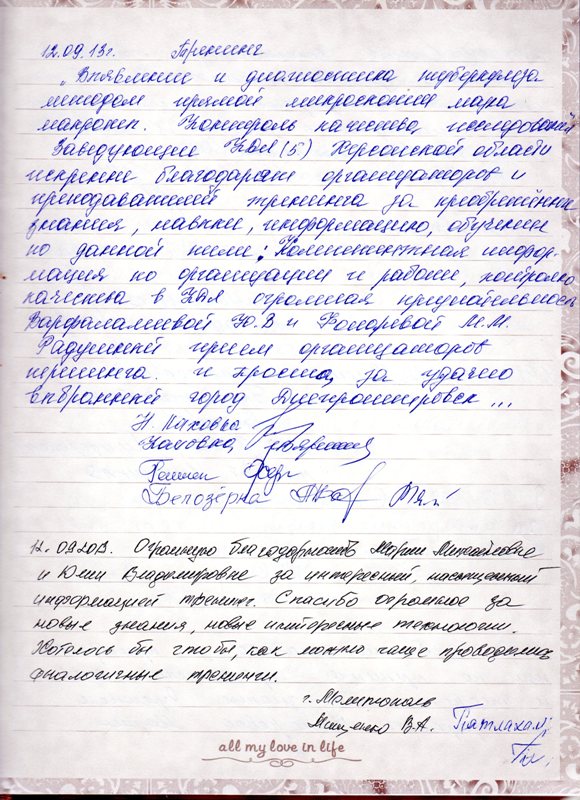 12.09.13г. Тренинг
"Выявление и диагностика туберкулеза
методом прямой микроскопии мазка
мокроты. Контроль качества исследований
Заведующие КДЛ (5) Херсонской области
искренне благодарят организаторов и
преподавателей тренинга за приобретённые
знания, навыки, информацию, обучение
по данной теме. Компетентная инфор-
мация по организации и работе, контролю
качества в КДЛ огромная признательность
Варфаламеевой Ю.В и М.М.
Радушный прием организаторов
тренинга. и просто за удачно
выбранный город Днепропетровск ...
Каховка
Белозёрка
12.09.2013. Огромную благодарность Марии Михайловне
и Юлии Владимировне за интересный, насыщенный
информацией тренинг. Спасибо огромное за
новые знания, новые интересные технологии.
Хотелось бы чтобы, как можно чаще проводились
аналогичные тренинги.
г. Мелитополь
Мищенко В.А.
all my love in life